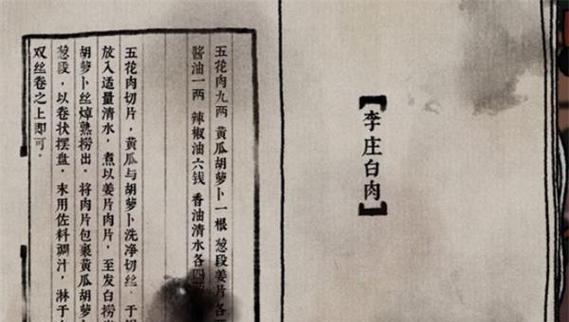 【李庄白肉】
五花肉九两 黄瓜胡萝卜一根 葱段姜片各
酱油一两 辣椒油六钱 香油清水各
五花肉切片，黄瓜与胡萝卜洗净切丝。于
放入适量清水，煮以姜片肉片，至发白捞
胡萝卜丝焯熟捞出。将肉片包裹黄瓜胡萝
葱段，以卷状摆盘。末用佐料调汁，淋于
双丝卷之上即可。